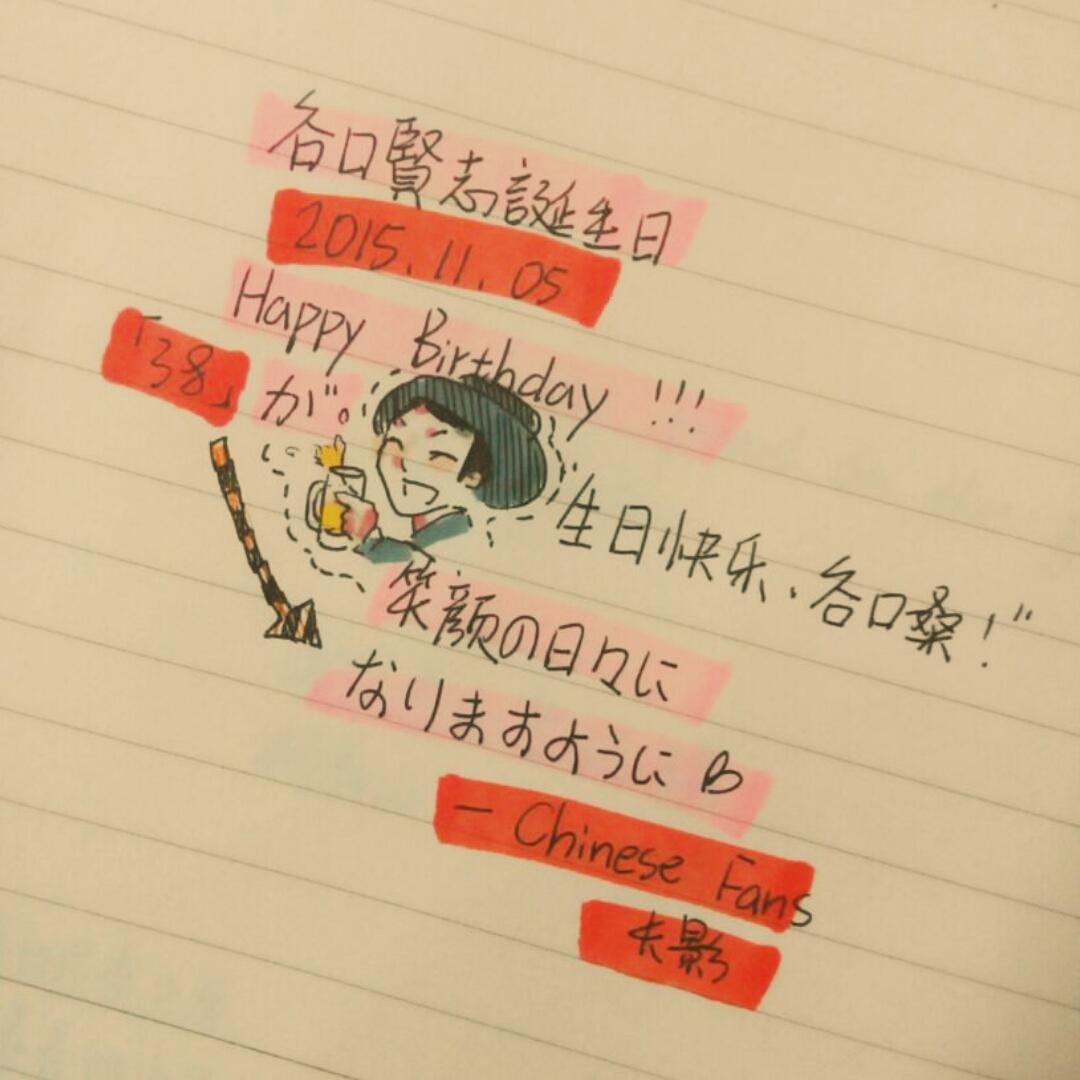 谷口賢志誕生日
2015.11.05
Happy Birthday !!!
「38」が。
生日快乐、谷口桑！"
笑顔の日々に
なりますように
— Chinese Fans